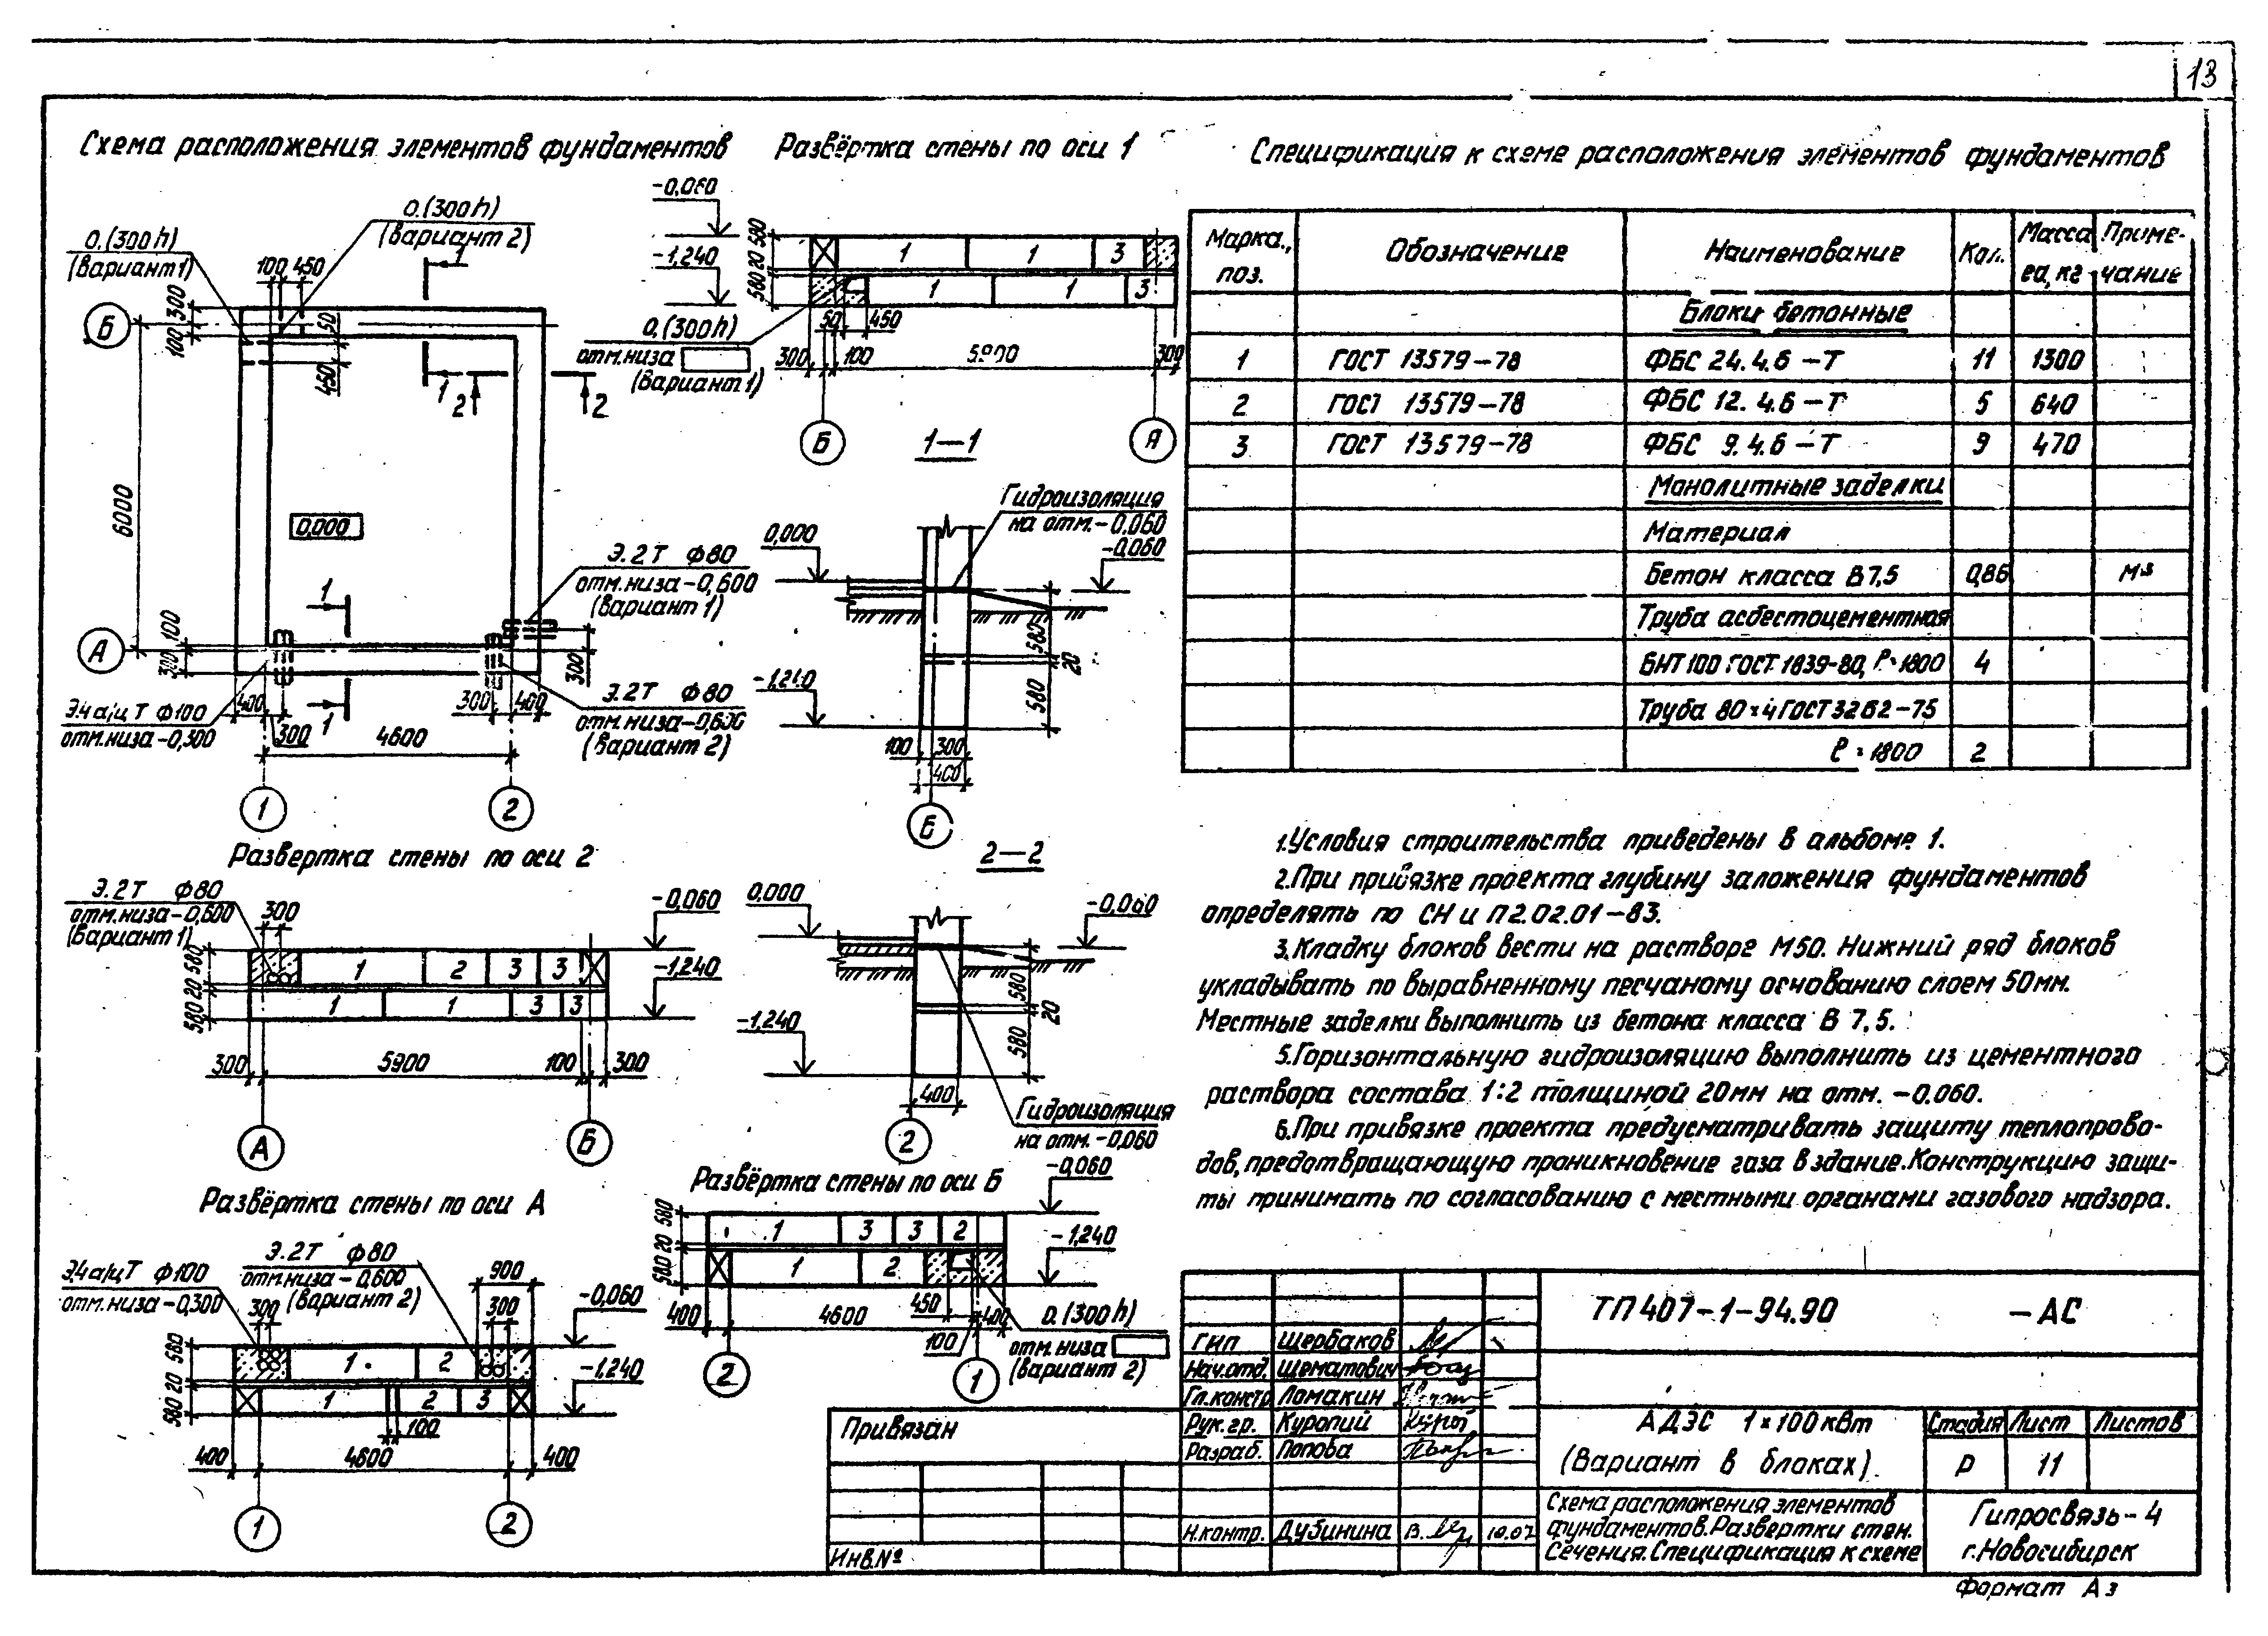 13
Схема расположения элементов фундаментов
О.(300h)
(вариант 2)
О.(300h)
(вариант 1)
1
100 450
300
Б
100
50
450
1
2 2
6000
0,000
Э.2Т Ф80
отм.низа-0,600
(вариант 1)
1
100
А
300
300
400
300
300 400
Э.4 а/ц Т Ф100
отм.низа-0,300
1
4600
Э.2Т Ф80
отм.низа-0,600
(вариант 2)
1 2
Развёртка стены по оси 1
-0,060
-1,240
580 20 580
1 1 3
1 1 3
О.(300h)
отм.низа
(вариант 1)
50 450
300 100 5900 300
Б А
1—1
Гидроизоляция
на отм.-0,060
0,000
-0,060
580
20
580
-1,240
100 300
400
Б
Развертка стены по оси 2
Э.2Т Ф80
отм.низа-0,600
(вариант 1)
300
-0,060
-1,240
580 20 580
1 2 3 3
1 1 3 3
300 5900 100 300
А Б
2—2
0,000
-0,060
580
20
580
-1,240
400
2
Гидроизоляция
на отм.-0,060
Развёртка стены по оси А
Э.4а/цТ Ф100
отм.низа-0,300
Э.2Т Ф80
отм.низа-0,600
(вариант 2)
900
300 300
-0,060
-1,240
580 20 580
1 2
1 2 3
100
400 4600 400
1 2
Развёртка стены по оси Б
-0,060
-1,240
580 20 580
1 3 3 2
1 2
400 4600 450 400
100
О.(300h)
отм.низа
(вариант 2)
2 1
Спецификация к схеме расположения элементов фундаментов
Марка, поз. Обозначение Наименование Кол. Масса ед,кг Приме-чание
Блоки бетонные
1 ГОСТ 13579-78 ФБС 24.4.6-Т 11 1300
2 ГОСТ 13579-78 ФБС 12.4.6-Т 5 640
3 ГОСТ 13579-78 ФБС 9.4.6-Т 9 470
Монолитные заделки
Материал
Бетон класса В7,5 0,86 м3
Труба асбестоцементная
БНТ 100 ГОСТ 1839-80, ℓ=1800 4
Труба 80×4 ГОСТ 3262-75
ℓ=1800 2
1.Условия строительства приведены в альбоме 1.
2.При привязке проекта глубину заложения фундаментов
определять по СНиП2.02.01-83.
3.Кладку блоков вести на растворе М50. Нижний ряд блоков
укладывать по выравненному песчаному основанию слоем 50мм.
Местные заделки выполнить из бетона класса В 7,5.
5.Горизонтальную гидроизоляцию выполнить из цементного
раствора состава 1:2 толщиной 20мм на отм. -0.060.
6.При привязке проекта предусматривать защиту теплопрово-
дов,предотвращающую проникновение газа в здание.Конструкцию защи-
ты принимать по согласованию с местными органами газового надзора.
ТП407-1-94.90 -АС
ГИП Щербаков
Нач.отд. Шематович
Гл.констр Ломакин
Рук.гр. Куропий
Разраб. Попова
Н.контр. Дубинина
АДЭС 1×100кВт
(Вариант в блоках)
Стадия Лист Листов
Р 11
Схема расположения элементов
фундаментов.Развертки стен.
Сечения.Спецификация к схеме
Гипросвязь-4
г.Новосибирск
Привязан
Инв.№
Формат А3